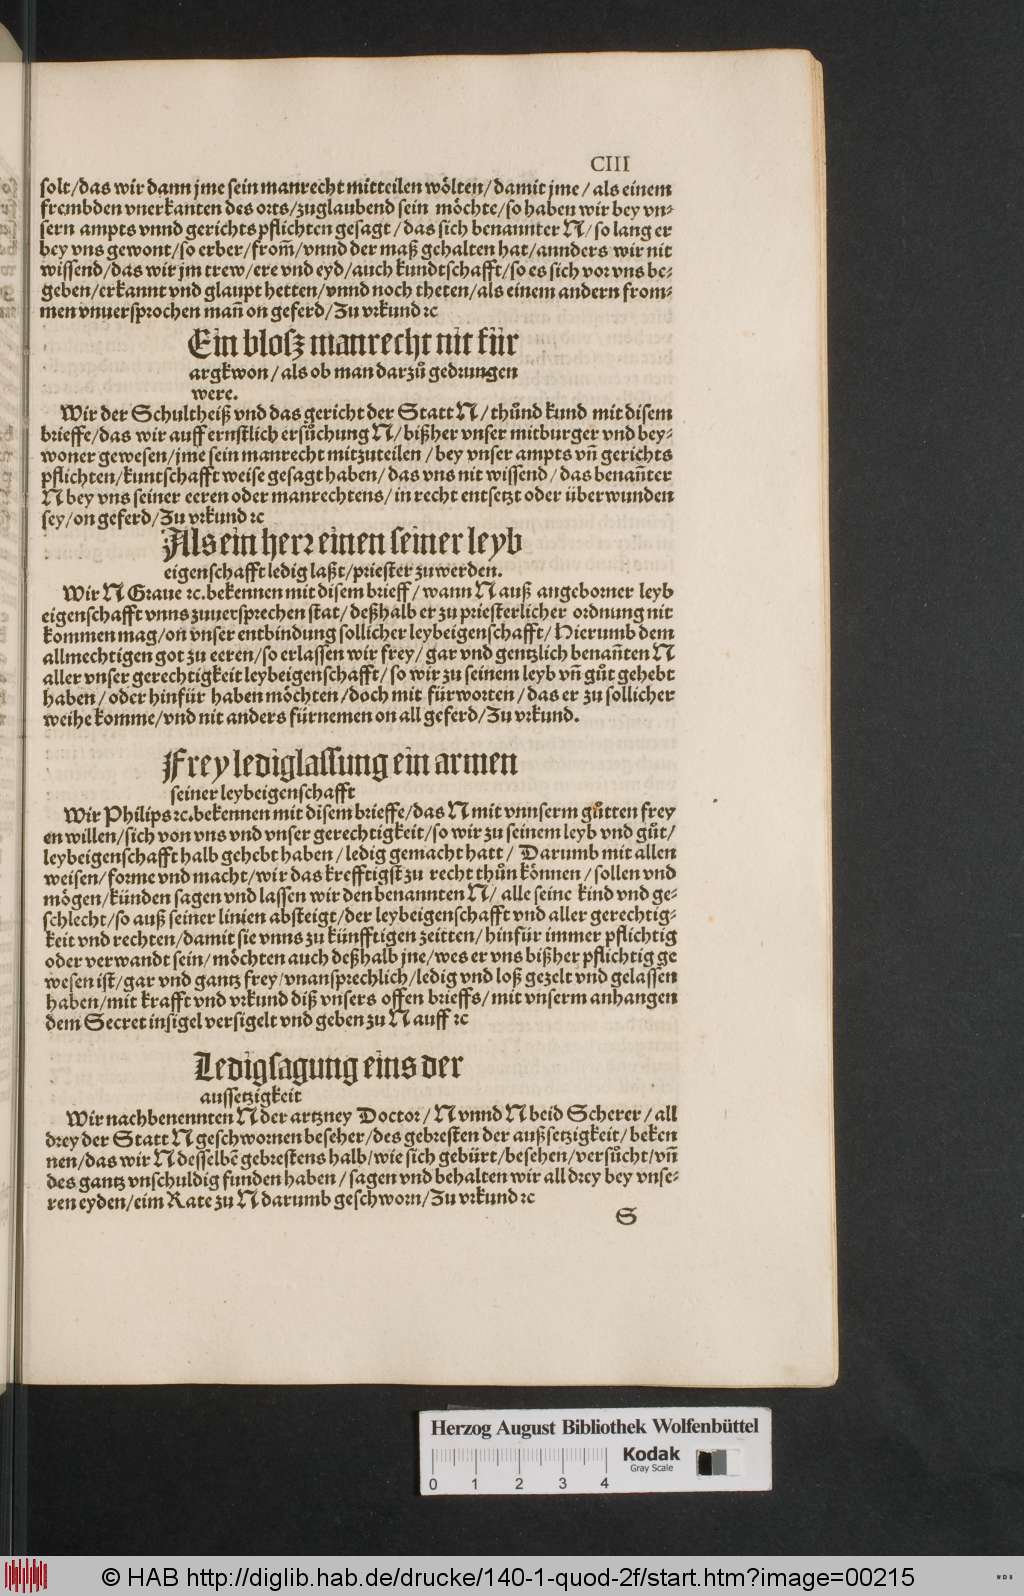 CIII
solt/das wir dann jme sein manrecht mitteilen wölten/damit jme/als einem
frembden vnerkanten des orts/zuglaubend sein möchte/so haben wir bey vn⸗
sern ampts vnnd gerichts pflichten gesagt/das sich benannter N/so lang er
bey vns gewont/so erber/from̄/vnnd der maß gehalten hat/annders wir nit
wissend/das wir jm trew/ere vnd eyd/auch kundtschafft/so es sich vor vns be⸗
geben/erkannt vnd glaupt hetten/vnnd noch theten/als einem andern from⸗
men vnuersprochen man̄ on geferd/Zu vrkund ꝛc
Ein blosz manrecht nit für
argkwon/als ob man darzů gedrungen
were.
Wir der Schultheiß vnd das gericht der Statt N/thůnd kund mit disem
brieffe/das wir auff ernstlich ersůchung N/bißher vnser mitburger vnd bey⸗
woner gewesen/jme sein manrecht mitzuteilen/bey vnser ampts vn̄ gerichts
pflichten/kuntschafft weise gesagt haben/das vns nit wissend/das benan̄ter
N bey vns seiner eeren oder manrechtens/in recht entsetzt oder überwunden
sey/on geferd/Zu vrkund ꝛc
Als ein herꝛ einen seiner leyb
eigenschafft ledig laßt/priester zuwerden.
Wir N Graue ꝛc.bekennen mit disem brieff/wann N auß angeborner leyb
eigenschafft vnns zuuersprechen stat/deßhalb er zu priesterlicher ordnung nit
kommen mag/on vnser entbindung sollicher leybeigenschafft/Hierumb dem
allmechtigen got zu eeren/so erlassen wir frey/gar vnd gentzlich benan̄ten N
aller vnser gerechtigkeit leybeigenschafft/so wir zu seinem leyb vn̄ gůt gehebt
haben/oder hinfür haben möchten/doch mit fürworten/das er zu sollicher
weihe komme/vnd nit anders fürnemen on all geferd/Zu vrkund.
Frey lediglassung ein armen
seiner leybeigenschafft
Wir Philips ꝛc.bekennen mit disem brieffe/das N mit vnnserm gůtten frey
en willen/sich von vns vnd vnser gerechtigkeit/so wir zu seinem leyb vnd gůt/
leybeigenschafft halb gehebt haben/ledig gemacht hatt/Darumb mit allen
weisen/forme vnd macht/wir das krefftigst zu recht thůn können/sollen vnd
mögen/künden sagen vnd lassen wir den benannten N/alle seine kind vnd ge⸗
schlecht/so auß seiner linien absteigt/der leybeigenschafft vnd aller gerechtig⸗
keit vnd rechten/damit sie vnns zu künfftigen zeitten/hinfür immer pflichtig
oder verwandt sein/möchten auch deßhalb jne/wes er vns bißher pflichtig ge
wesen ist/gar vnd gantz frey/vnansprechlich/ledig vnd loß gezelt vnd gelassen
haben/mit krafft vnd vrkund diß vnsers offen brieffs/mit vnserm anhangen
dem Secret insigel versigelt vnd geben zu N auff ꝛc
Ledigsagung eins der
aussetzigkeit
Wir nachbenennten N der artzney Doctor/N vnnd N beid Scherer/all
drey der Statt N geschwornen beseher/des gebresten der außsetzigkeit/beken
nen/das wir N desselbē gebrestens halb/wie sich gebürt/besehen/versůcht/vn̄
des gantz vnschuldig funden haben/sagen vnd behalten wir all drey bey vnse⸗
ren eyden/eim Rate zu N darumb geschworn/Zu vrkund ꝛc
S
Herzog August Bibliothek Wolfenbüttel
0 1 2 3 4
Kodak
Gray Scale
© HAB http://diglib.hab.de/drucke/140-1-quod-2f/start.htm?image=00215